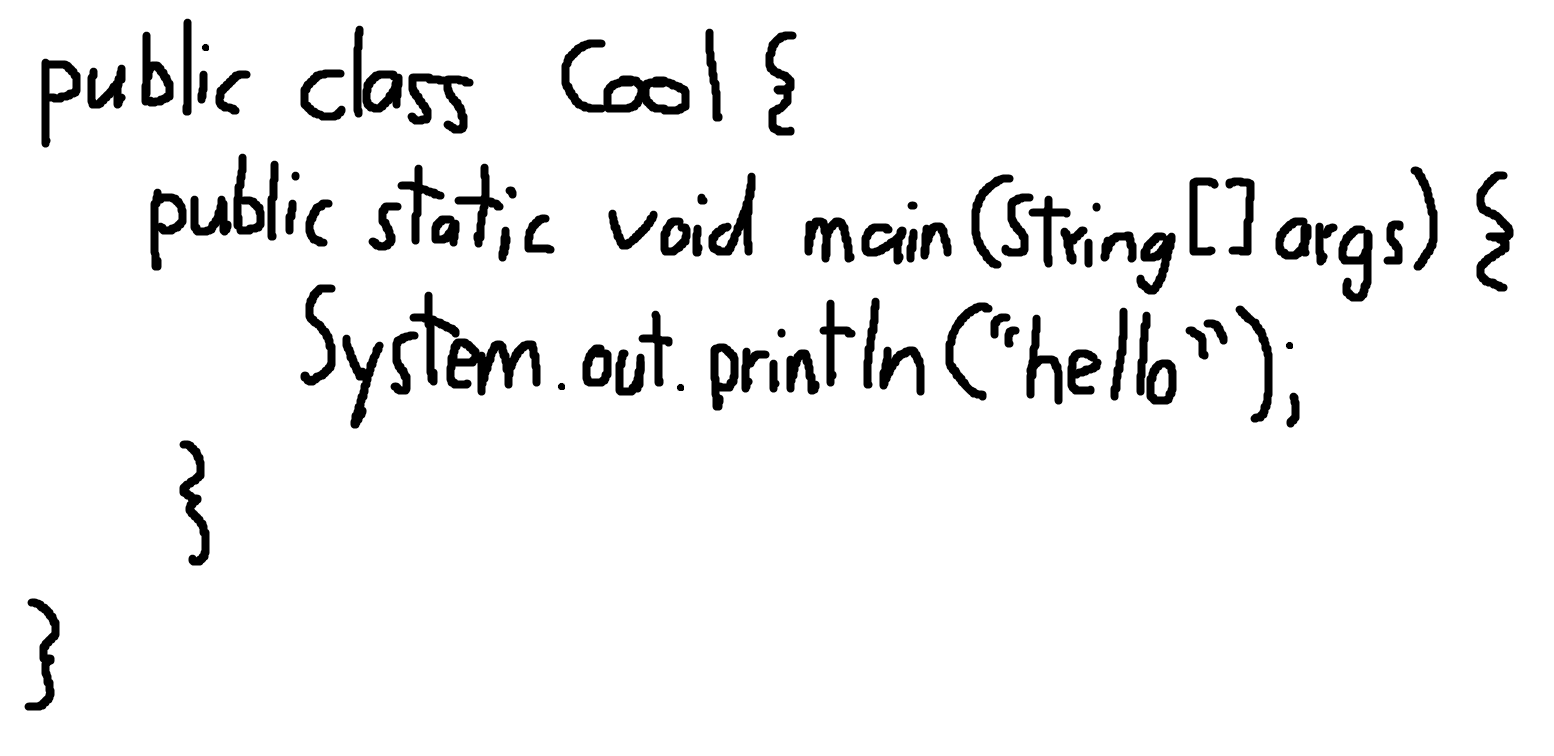 public class Cool {
public static void main(String[] args) {
System.out.println(“hello”);
}
}